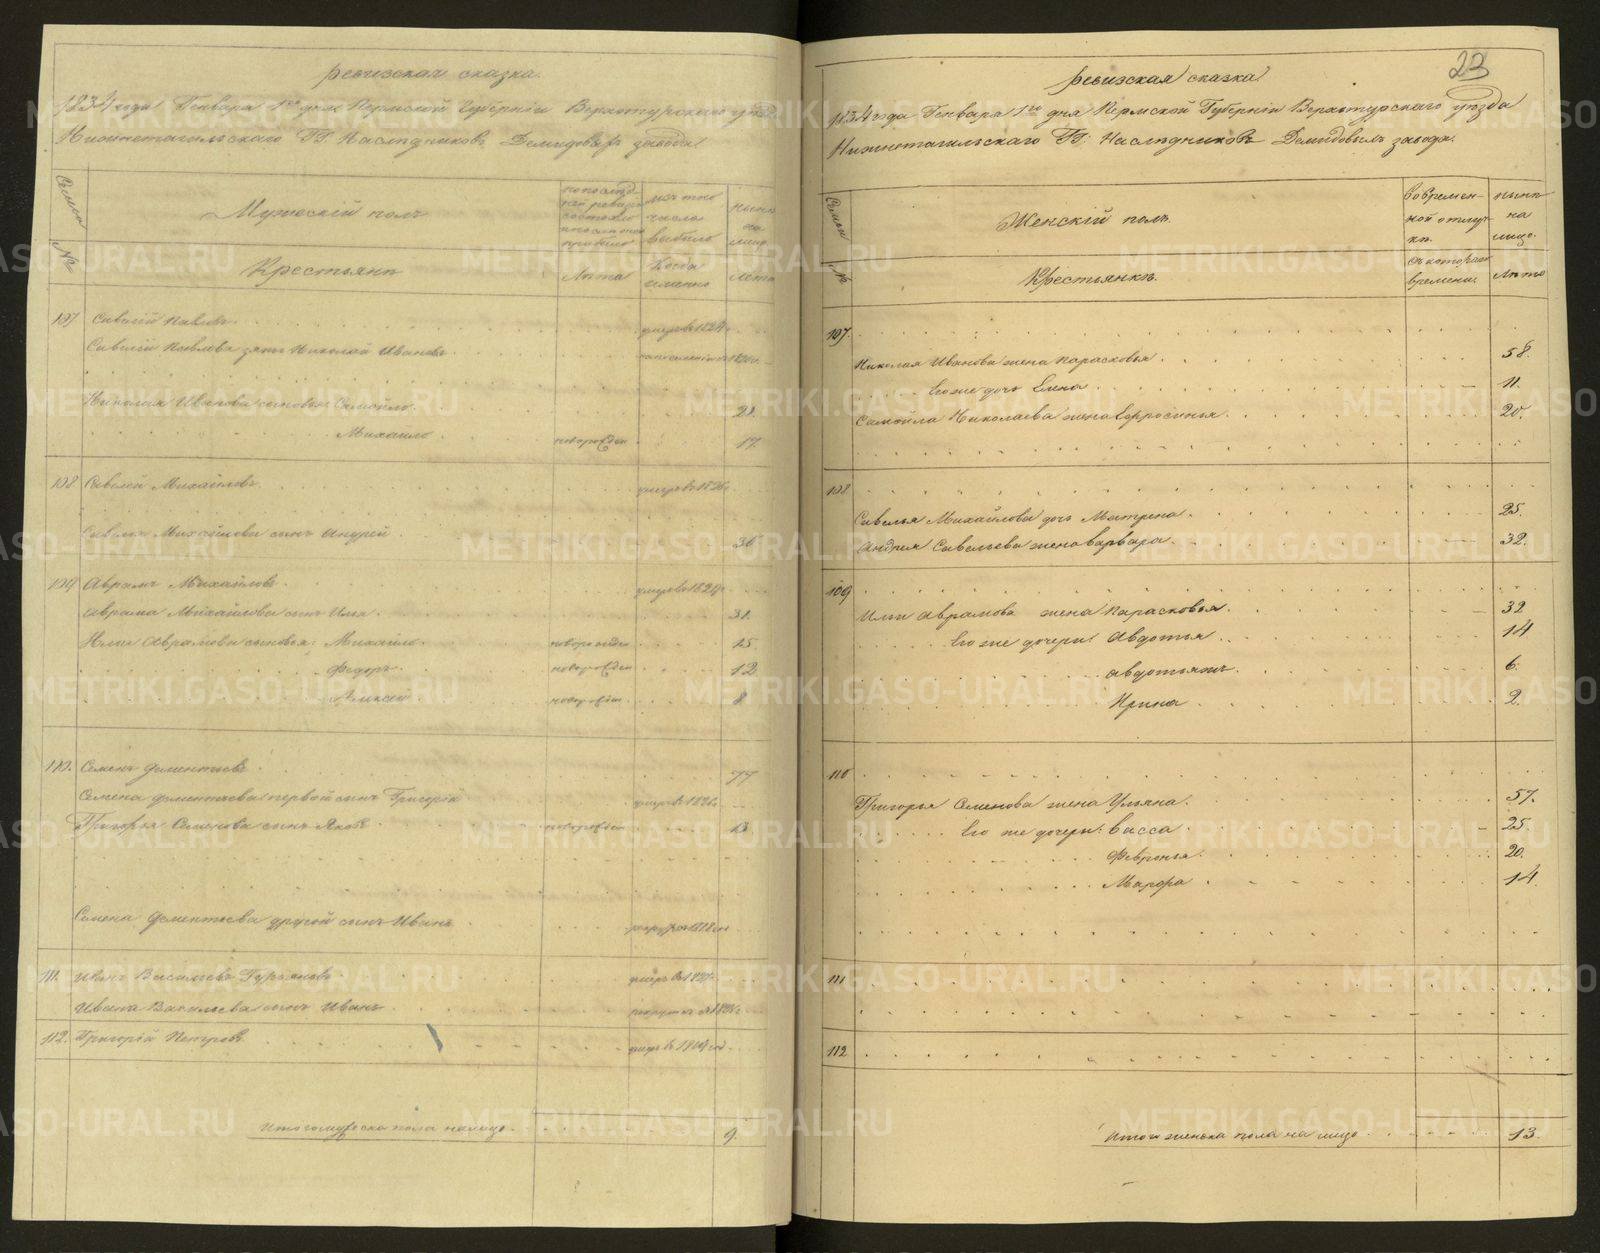 ревизская сказка.
1834 года Генваря 1го дня Пермской Губернiи Верхотурского уѣзда
Нижнетагильскаго ГГ. Наслѣдниковъ Демидовыхъ завода
Семьи
№
Мужескiй полъ
Крестьянъ
по послѣд-
ней ревизiи
состояло
и послѣ оной
прибыло
Лѣта
изъ того
числа
выбыло
Когда
именно
нынѣ
на
лицо
Лѣта
107 Савелiй Павловъ умеръ въ 1824
Савелiя Павлова зять Николай Ивановъ
Николая Иванова сыновья: Самойло 21.
Михайло новорожден 17.
108 Савелей Михайловъ умеръ въ 1826
Савелья Михайлова сынъ Андрей 36
109 Аврамъ Михайловъ умеръ въ 1827
Аврама Михайлова сынъ Илья 31.
Ильи Аврамова сыновья: Михайло новорожден 15
Федоръ новорожден 12
Алексей новорожден 8
110. Семенъ Дементьевъ 77
Семена Дементьева первой сынъ Григорiй умеръ въ 1826
Григорья Семенова сынъ Яковъ новорожден 13
Семена Дементьева другой сынъ Иванъ рекрутъ 1828
111. Иванъ Васильевъ Гурьяновъ умеръ въ 1827
Ивана Васильева сынъ Иванъ рекрутъ
112. Григорiй Петровъ
Итого мужеска пола на лицо 9.
23
ревизская сказка
1834 года Генваря 1го дня Пермской Губернiи Верхотурскаго уѣзда
Нижнетагильскаго ГГ. Наслѣдниковъ Демидовыхъ завода.
Семьи
№
Женскiй полъ.
Крестьянкъ.
во времен-
ной отлуч-
кѣ.
съ котораго
времени.
нынѣ
на
лицо.
Лѣта
107.
Николая Иванова жена Парасковья 58.
Его же дочь Елена 11.
Самойла Николаева жена Ефросинья 20.
108
Савелья Михайлова дочь Матрена 25.
Андрея Савельева жена Варвара 32.
109
Ильи Аврамова жена Парасковья 32
Его же дочери: Авдотья 14
Авдотья жъ 6.
Ирина 2.
110
Григорья Семенова жена Ульяна 57.
Его же дочери: Васса 25.
Февронья 20.
Марфа 14.
111
112
Итого женска пола на лицо 13.
METRIKI.GASO-URAL.RU